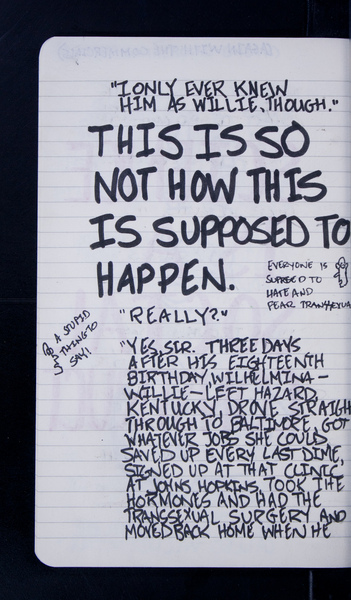 "I ONLY EVER KNEW
HIM AS WILLIE, THOUGH."
THIS IS SO
NOT HOW THIS
IS SUPPOSED TO
HAPPEN.
EVERYONE IS
TO
HATE AND
FEAR TRANSSEXUA
"REALLY?"
A STUPID
THING TO
SAY!
"YES, SIR. THREE DAYS
AFTER HIS EIGHTEENTH
BIRTHDAY, WILHELMINA —
WILLIE — LEFT HAZARD,
KENTUCKY, DROVE STRAIGH
THROUGH TO BALTIMORE, GOT
WHATEVER JOBS SHE COULD
SAVED UP EVERY LAST DIME,
SIGNED UP AT THAT CLINIC
AT JOHNS HOPKINS TOOK THE
HORMONES AND HAD THE
TRANSSEXUAL SURGERY AND
MOVED BACK HOME WHEN HE